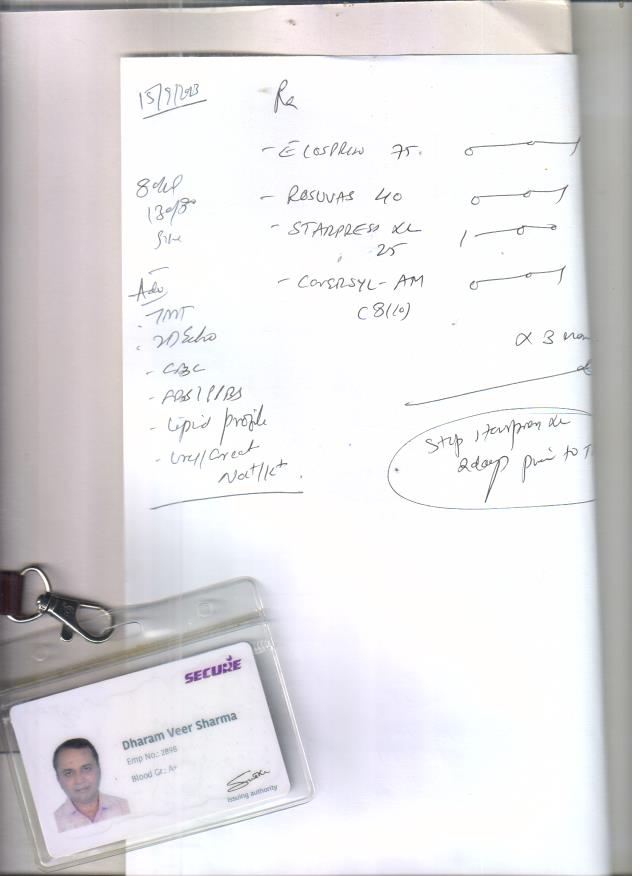 15/9/2013
Rx
- ECOSPRIN 75.
- ROSUVAS 40
130/80
- STARPRESS XL
25
- COVERSYL-AM
(8/10)
Adv
- TMT
- 2D Echo
x 3
- CBC
- FBS/PPBS
- Lipid profile
- Urea/Creat
Na+/K+
Stop starpress XL
2days prior to T
SECURE
Dharam Veer Sharma
Emp No.: 2898
Blood Gr.: A+
Issuing authority